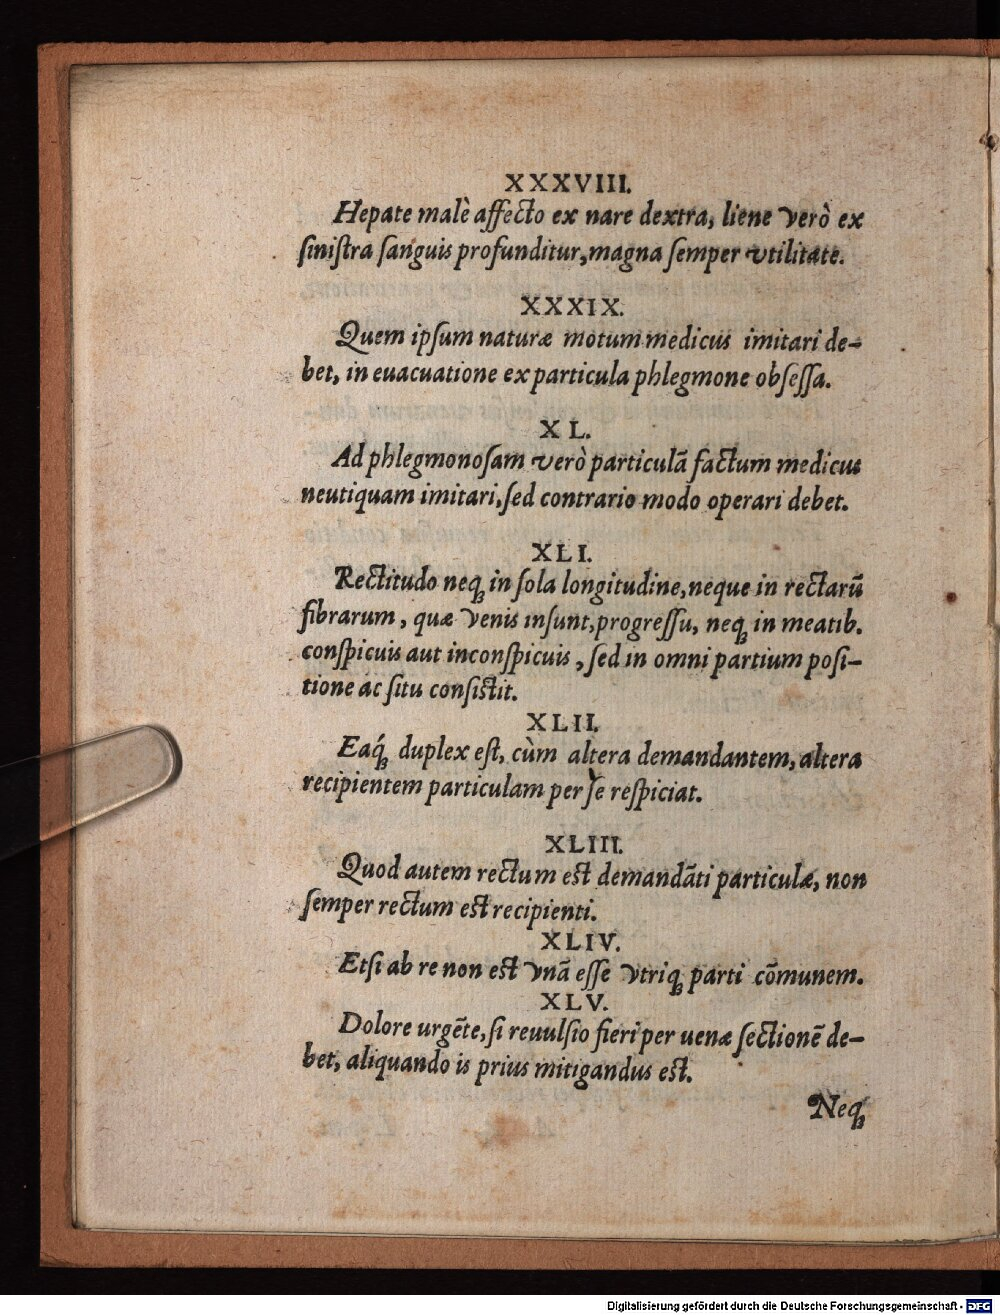 XXXVIII.
Hepate malè affecto ex nare dextra, liene verò ex
siniſtra ſanguis profunditur, magna ſemper vtilitate.
XXXIX.
Quem ipſum naturæ motum medicus imitari de-
bet, in euacuatione ex particula phlegmone obſeſſa.
XL.
Ad phlegmonoſam verò particulã factum medicus
neutiquam imitari, ſed contrario modo operari debet.
XLI.
Rectitudo neqꝫ in ſola longitudine, neque in rectarũ
fibrarum, quæ venis inſunt, progreſſu, neqꝫ in meatib.
conſpicuis aut inconſpicuis, ſed in omni partium poſi-
tione ac ſitu conſiſtit.
XLII.
Eaq́ꝫ duplex eſt, cùm altera demandantem, altera
recipientem particulam per ſe reſpiciat.
XLIII.
Quod autem rectum eſt demandãti particulæ, non
ſemper rectum eſt recipienti.
XLIV.
Etſi ab re non eſt vnã eſſe vtriqꝫ parti cõmunem.
XLV.
Dolore urgẽte, ſi reuulſio fieri per uenæ ſectionẽ de-
bet, aliquando is prius mitigandus eſt.
Neqꝫ
Digitalisierung gefördert durch die Deutsche Forschungsgemeinschaft - DFG